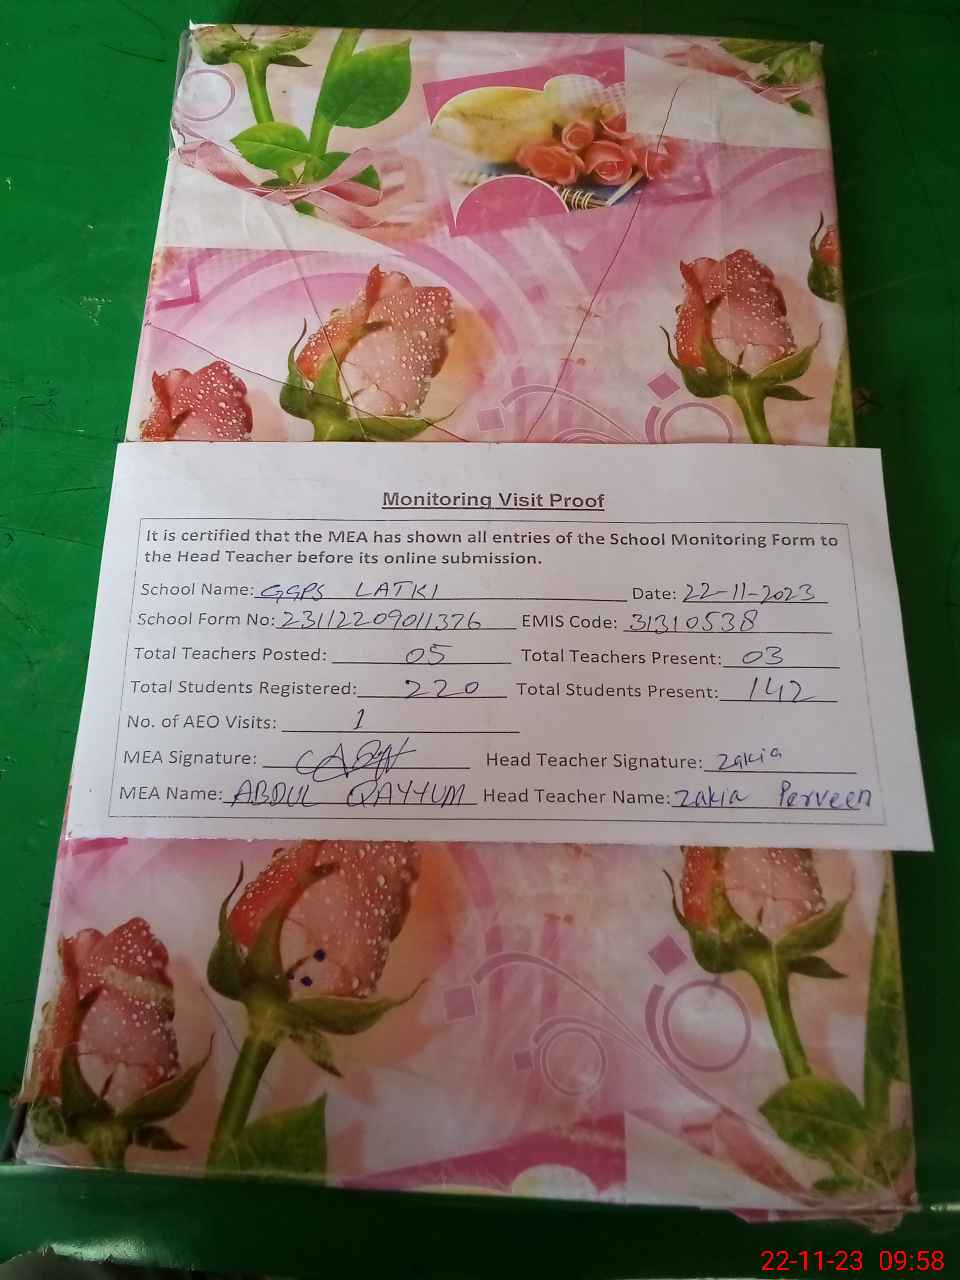 Monitoring Visit Proof
It is certified that the MEA has shown all entries of the School Monitoring Form to
the Head Teacher before its online submission.
School Name: GGPS LATKI Date: 22-11-2023
School Form No: 23112209011376 EMIS Code: 31310538
Total Teachers Posted: 05 Total Teachers Present: 03
Total Students Registered: 220 Total Students Present: 142
No. of AEO Visits: 1
MEA Signature: Head Teacher Signature: zakia
MEA Name: ABDUL QAYYUM Head Teacher Name: zakia Perveen
22-11-23 09:58